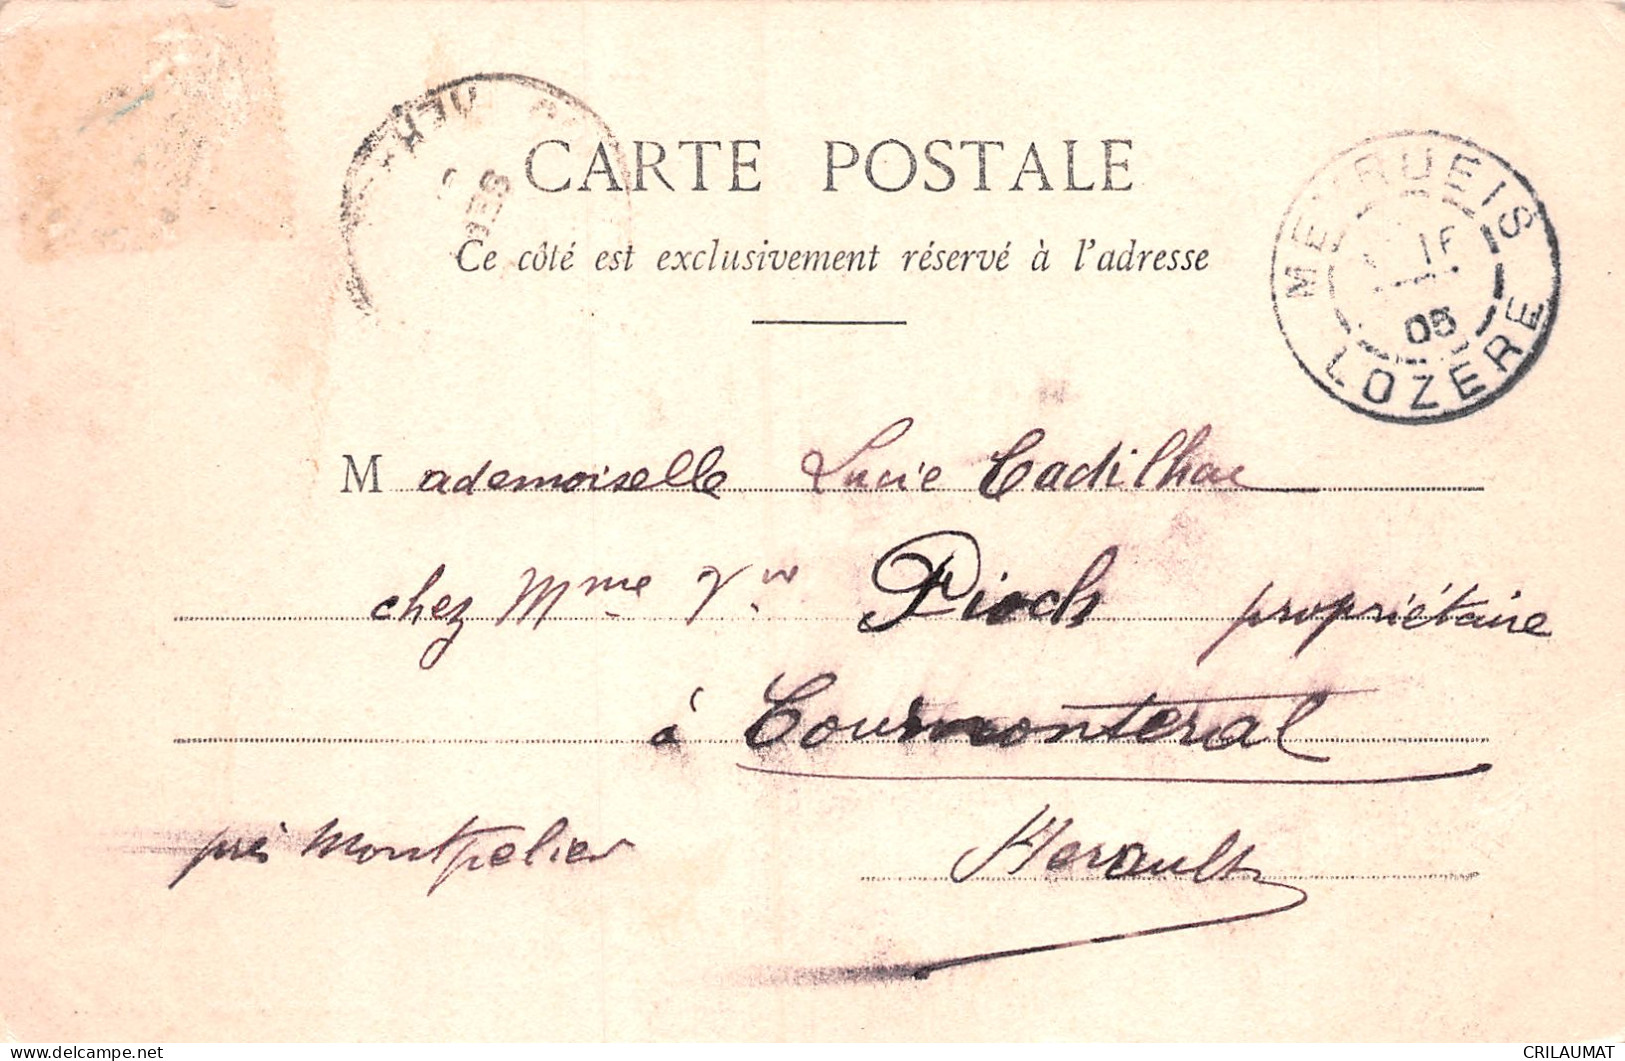 CARTE POSTALE
Ce côté est exclusivement réservé à l'adresse
MEYRUEIS
05
LOZERE
Mademoiselle Lucie Cadilhac
chez Mme Vve Pioch propriétaire
à Cournonterral
près Montpelier Herault
CRILAUMAT